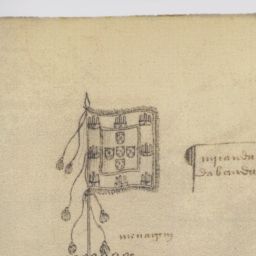 miranda
da banda
menagem